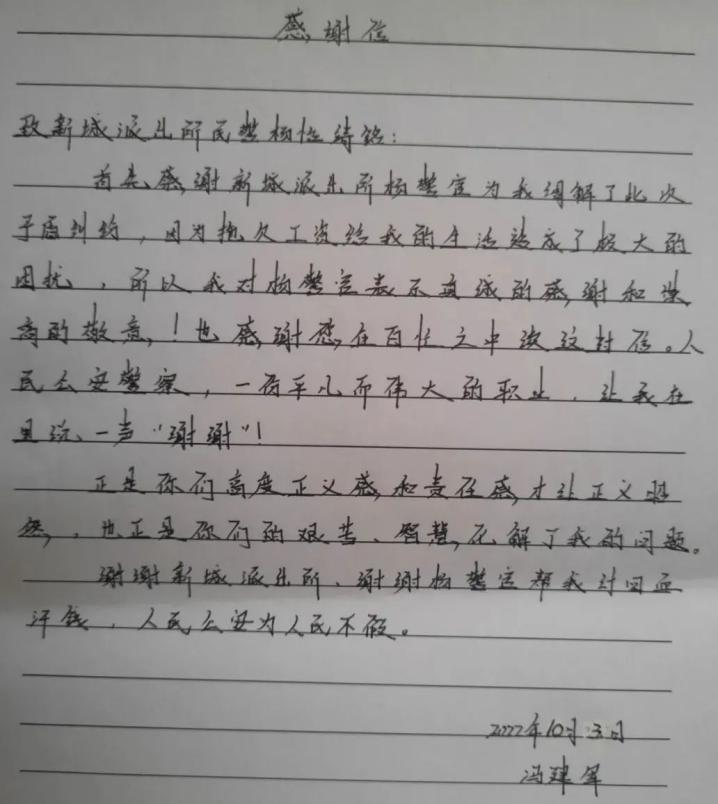 感谢信
致新城派出所民警杨
首先感谢新城派出所杨警官为我调解了此次
矛盾纠纷，因为拖欠工资给我的生活造成了极大的
困扰，所以我对杨警官表示真诚的感谢和崇
高的敬意，！也感谢您在百忙之中读这封信。人
民公安警察，一份平凡而伟大的职业，让我在
里说、一声“谢谢”！
正是你们高度正义感和责任感才让正义
，也正是你们的艰苦、智慧、解了我的问题。
谢谢新城派出所、谢谢杨警官帮我讨回血
汗钱，人民公安为人民不假。
2022年10月3日
冯建军